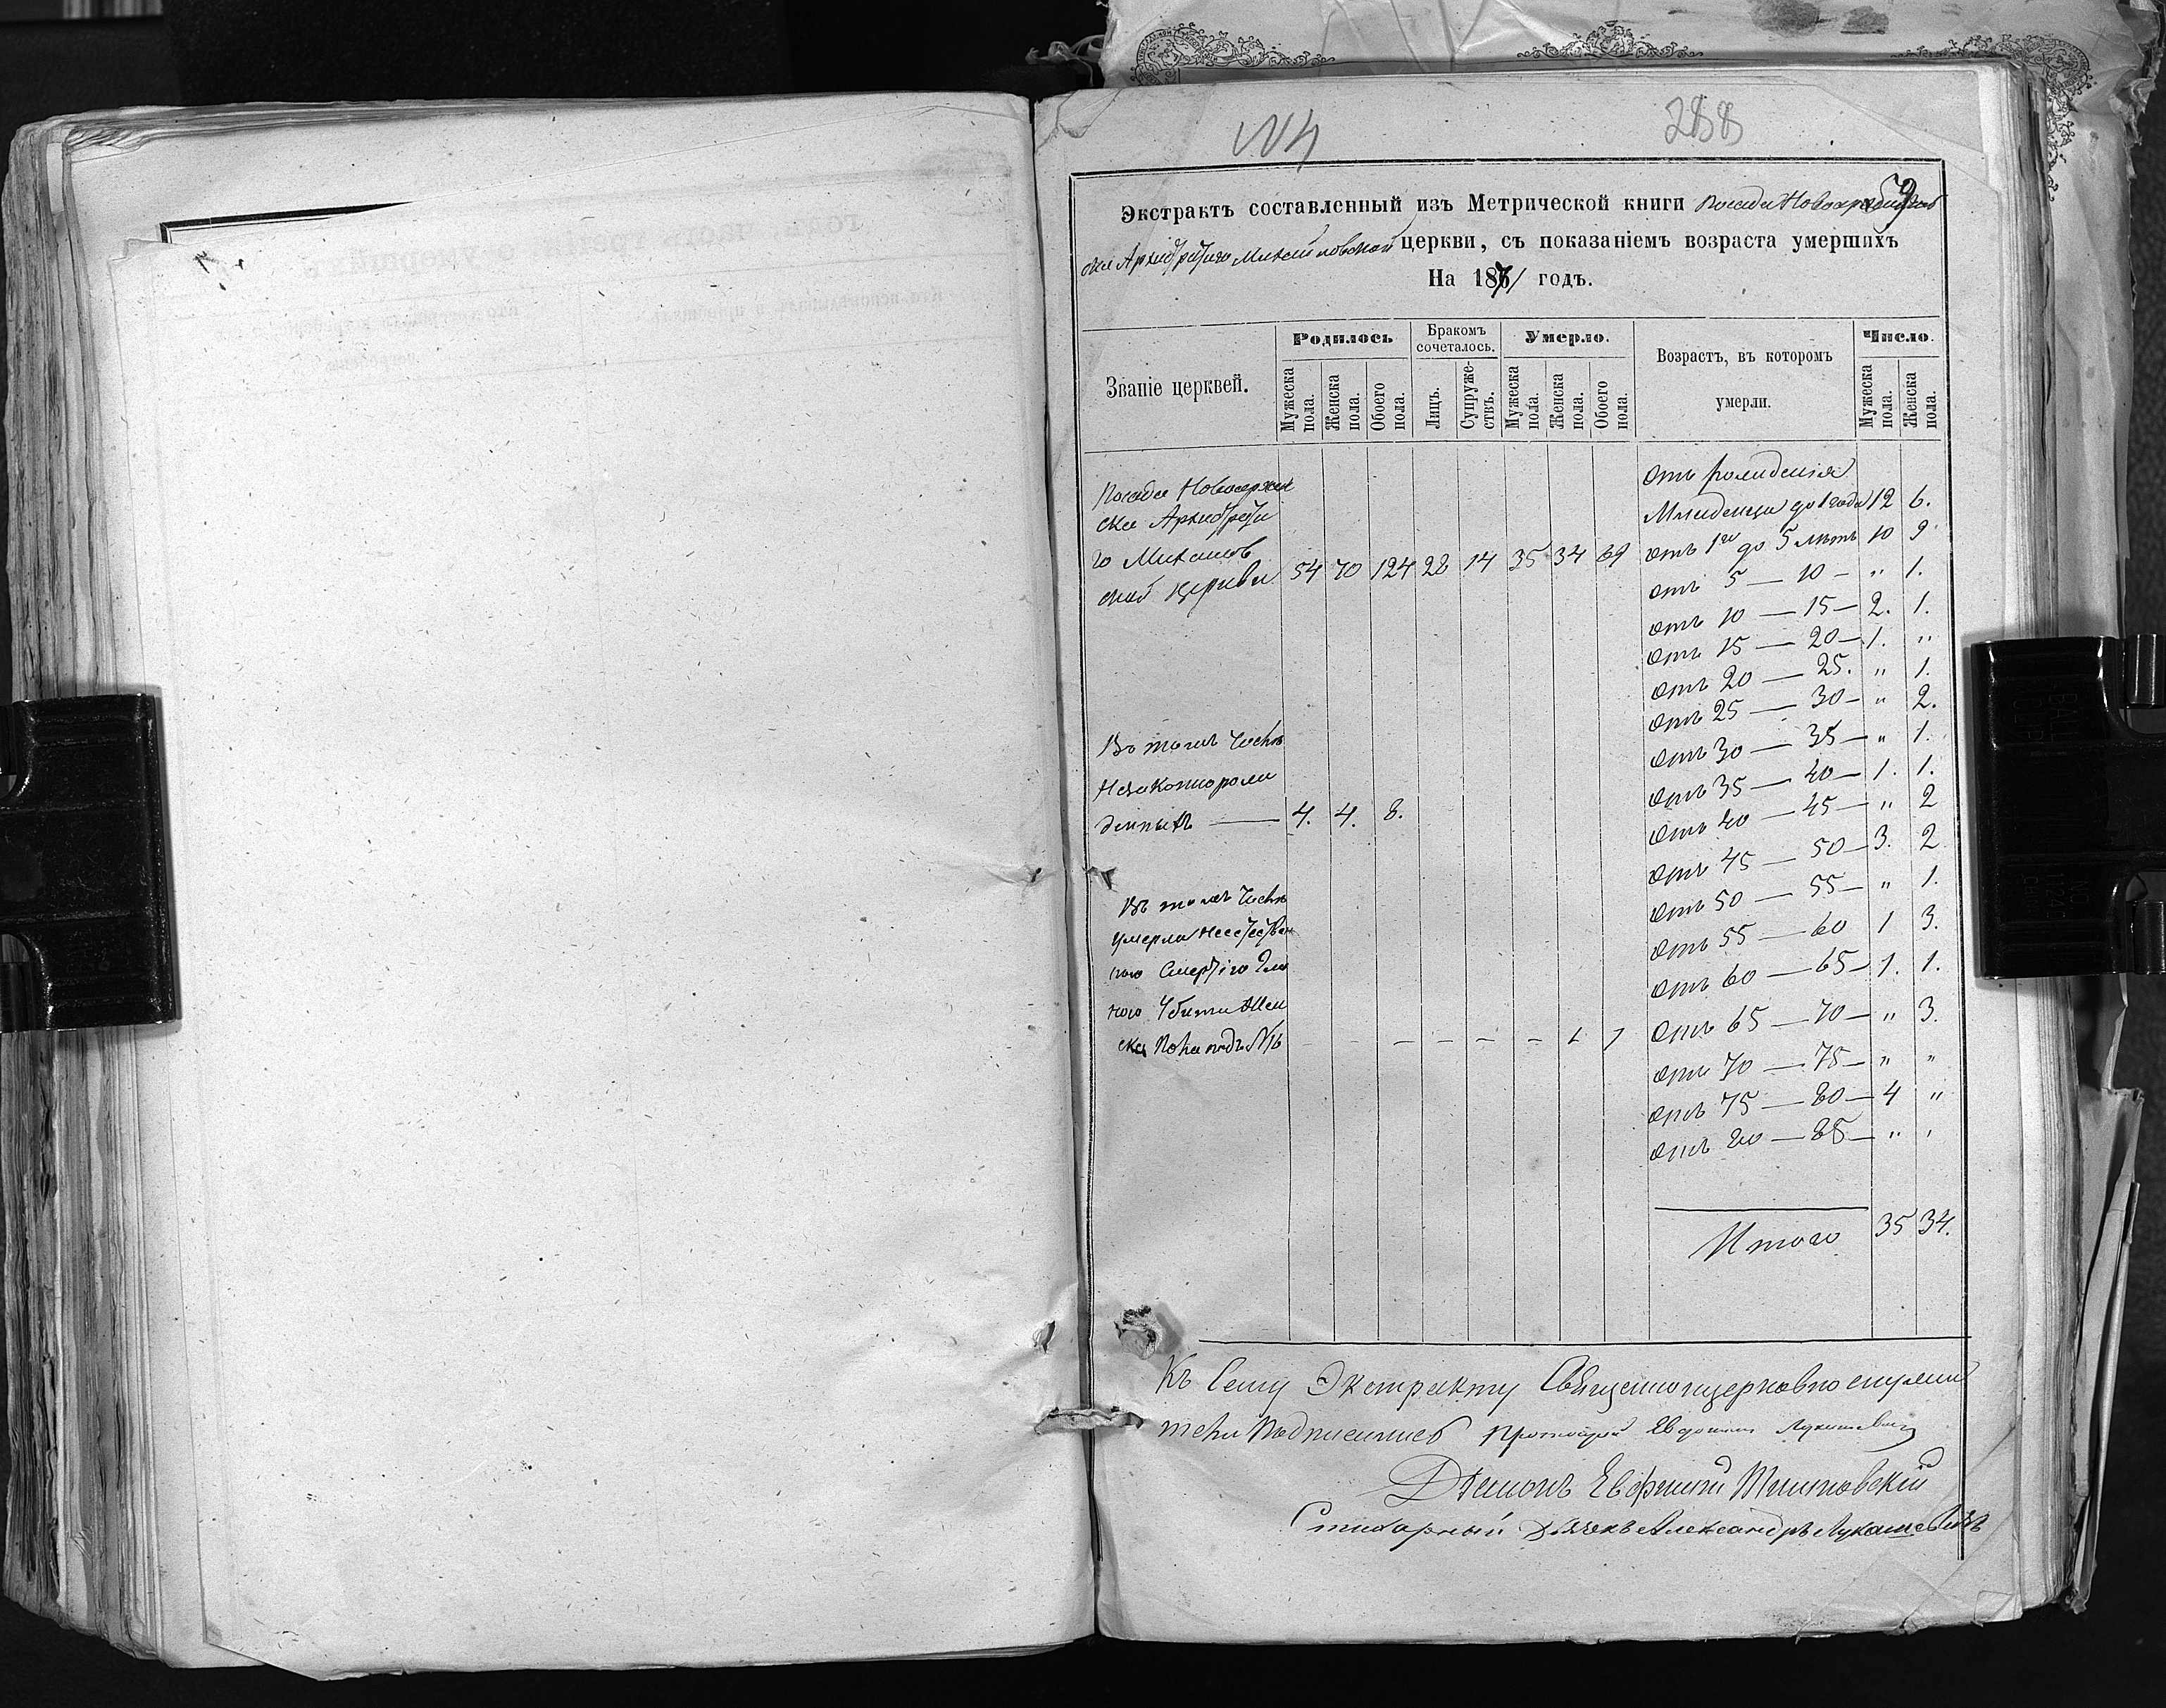 288
Экстрактъ составленный изъ Метрической книги Посада Новоархангель
ска Архистратиго Михайловской церкви, съ показаніемъ возраста умершихъ
На 1871 годъ.
Званіе церквей.
Родилось
Бракомъ сочеталось.
Умерло.
Возрастъ, въ которомъ умерли.
Число.
Мужеска пола. Женска пола. Обоего пола. Лицъ. Супружествъ. Мужеска пола. Женска пола. Обоего пола. Мужеска пола. Женска пола.
Посада Новоархан
ска Архистрати
го Михайлов
ской Церкви 54 70 124 28 14 35 34 69
Въ томъ числѣ
Незаконорож
денныхъ — 4. 4. 8.
Въ томъ числѣ
умерла неестествен
ною смертію
Убита Жен
ска пола подъ № - - - - - - 1 1
Отъ рожденія
Младенцы до 1 года 12 6.
отъ 1го до 5 лѣтъ 10 9
отъ 5 — 10 — " 1.
отъ 10 — 15 — 2. 1.
отъ 15 — 20 — 1. "
отъ 20 — 25. " 1.
отъ 25 — 30 — " 2.
отъ 30 — 35 — " 1.
отъ 35 — 40 — 1. 1.
отъ 40 — 45 — " 2
отъ 45 — 50 — 3. 2
отъ 50 — 55 — " 1.
отъ 55 — 60 1 3.
отъ 60 — 65 — 1. 1.
отъ 65 — 70 — " 3.
отъ 70 — 75 — " "
отъ 75 — 80 — 4 "
отъ 80 — 85 — " "
Итого 35 34.
Къ сему Экстракту Священноцерковнослужи
тели подписались Протоіерей Евдоким Лукашевич
Діаконъ Евфимій
Стихарный Дьячекъ Александръ Лукашевичъ